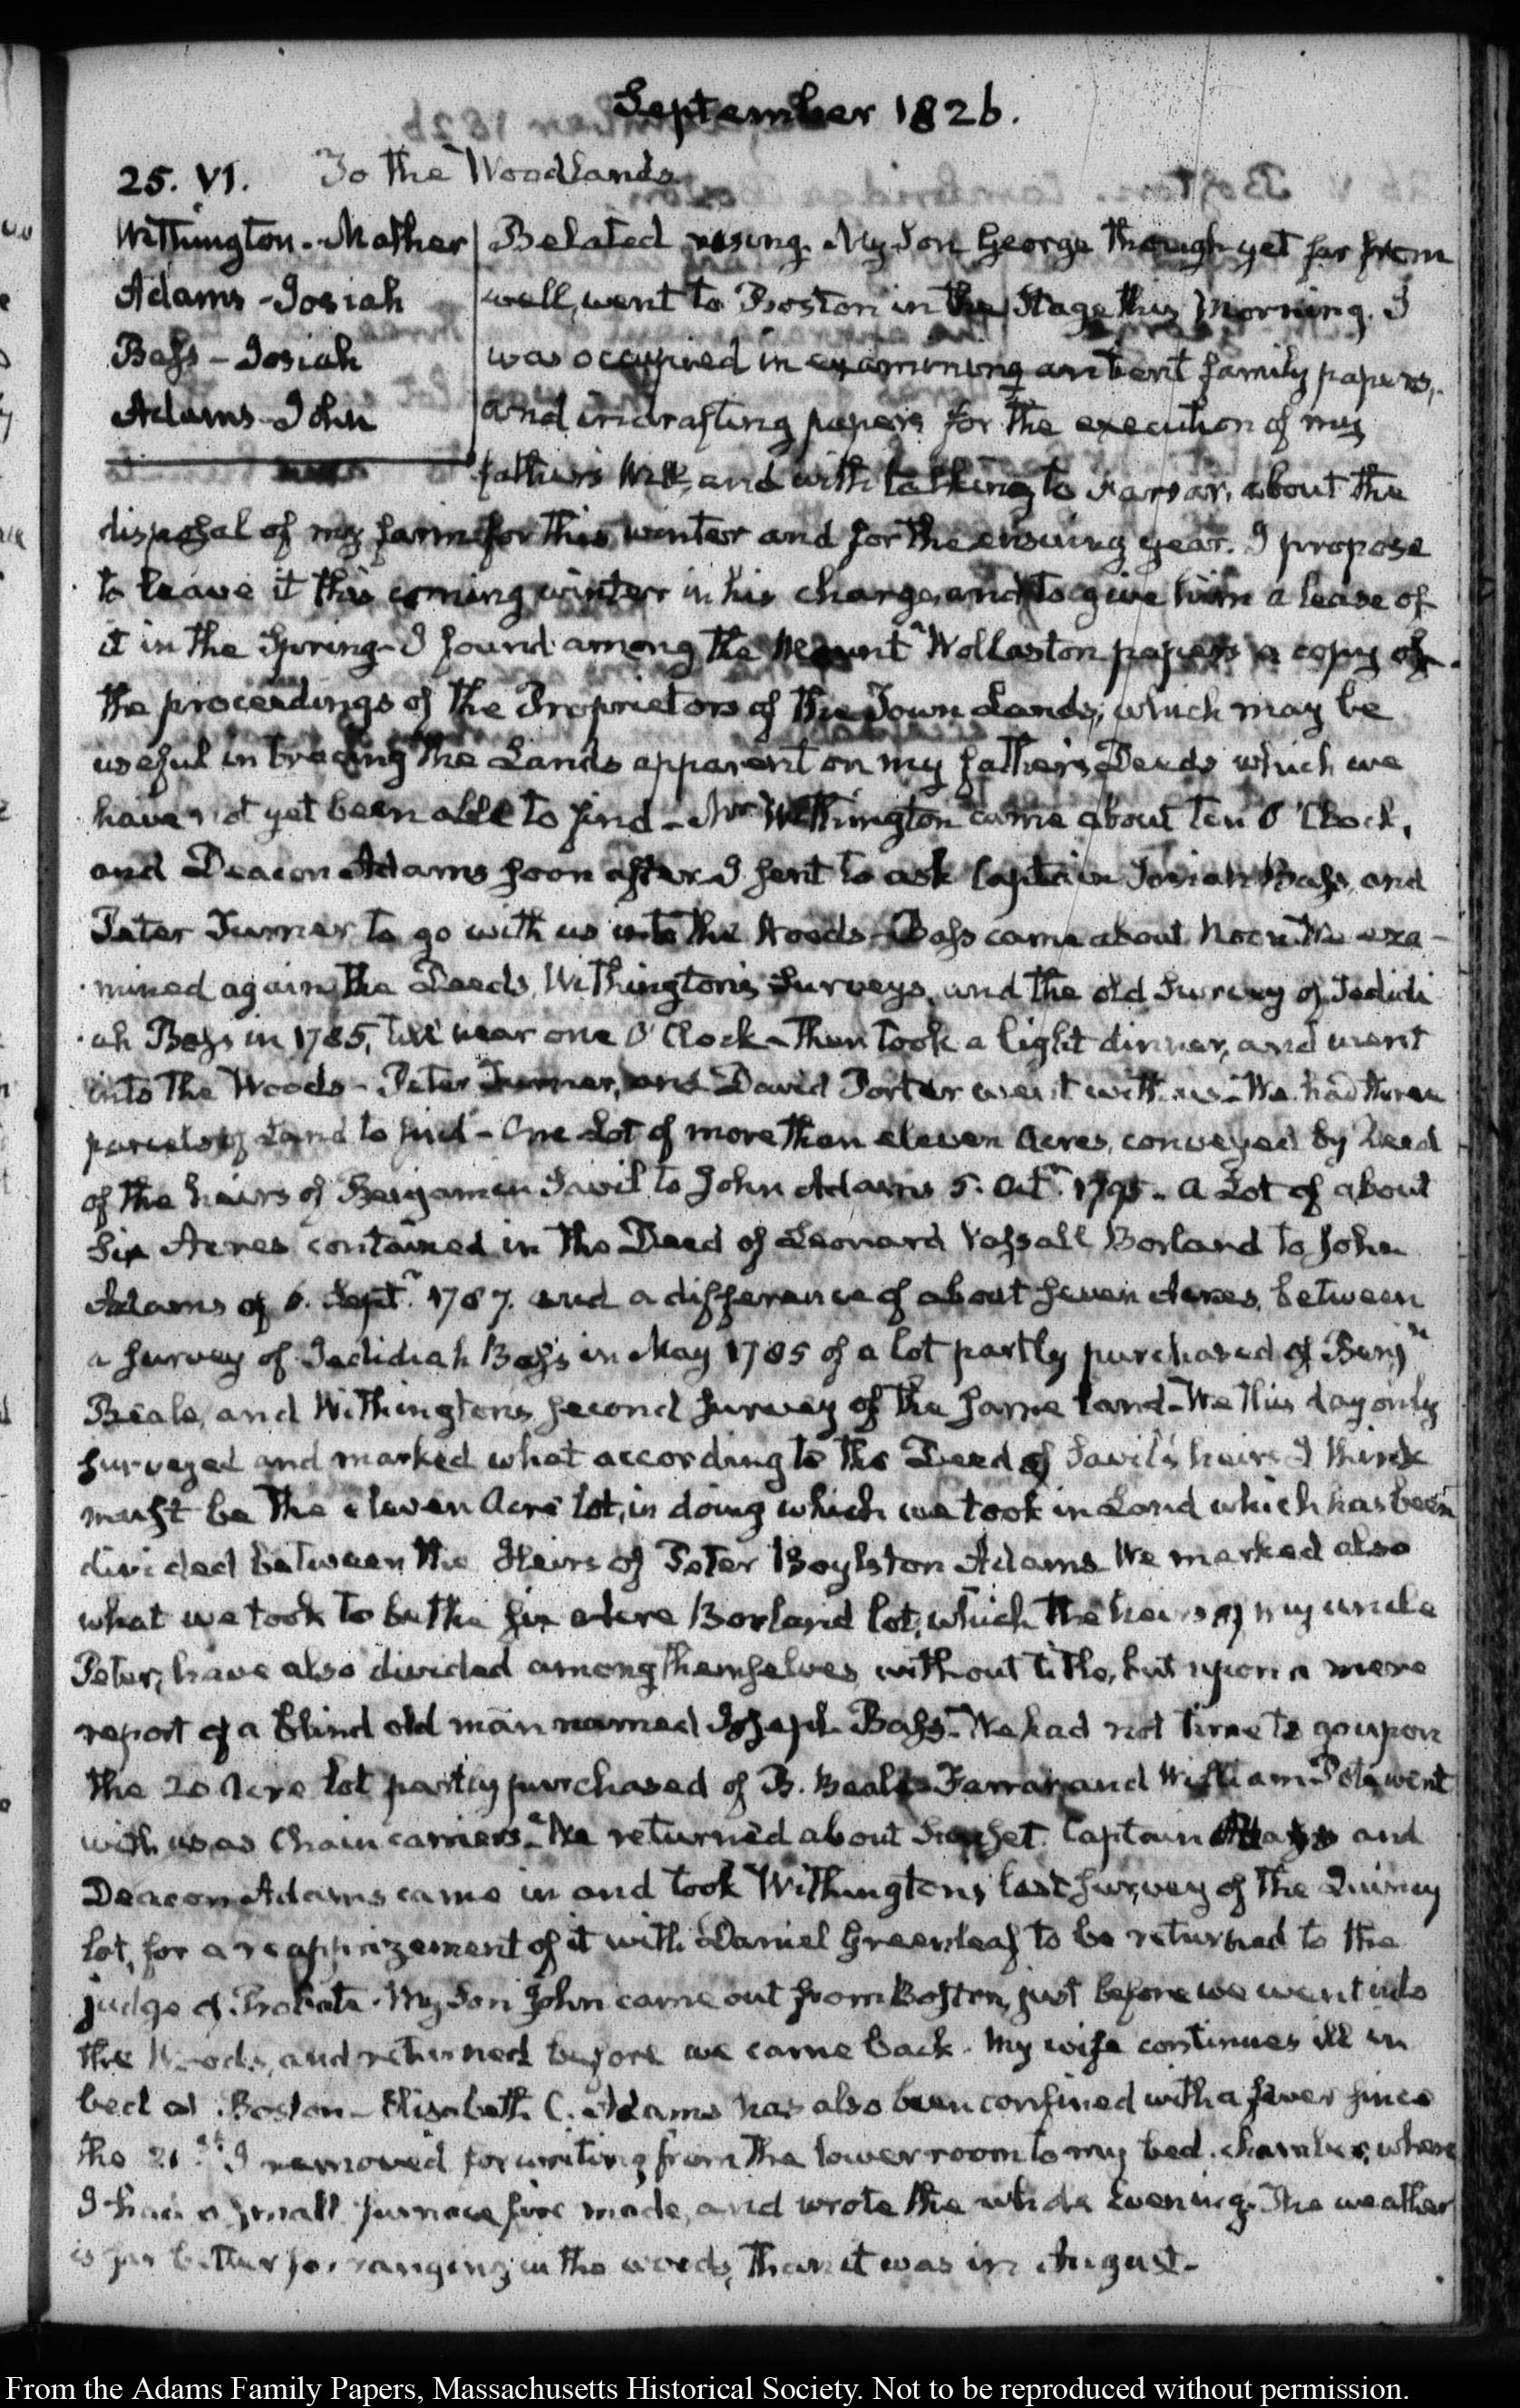 September 1826.
25. VI. To the Woodlands
Withington - Mather
Adams - Josiah
Bass - Josiah
Adams - John
Belated rising. My Son George though yet far from
well, went to Boston in the Stage this Morning. I
was occupied in examining antient family papers,
and in drafting papers for the execution of my
father's Will, and with talking to Farrar, about the
disposal of my farm for this winter and for the ensuing year. I propose
to leave it this coming winter in his charge, and to give him a lease of
it in the Spring - I found among the Mount Wollaston papers a copy of
the proceedings of the Proprietors of the Town Lands, which may be
useful in tracing the Lands apparent on my father's Deeds which we
have not yet been able to find - Mr Withington came about ten O'Clock,
and Deacon Adams soon after I sent to ask Captain Josiah Bass, and
Peter Turner to go with us into the Woods - Bass came about Noon We exa-
mined again the Deeds, Withington's Surveys, and the old Survey of Jedidi
ah Bass in 1785, till near one O'Clock - Then took a light dinner, and went
into the Woods - Peter Turner, and David Porter went with us - We had three
parcels of Land to find - One Lot of more than eleven Acres, conveyed by Deed
of the heirs of Benjamin Savil to John Adams 5. Octr. 1795 - A Lot of about
Six Acres contained in the Deed of Leonard Vassall Borland to John
Adams of 6. Septr. 1787. and a difference of about seven Acres, between
a survey of Jedidiah Bass in May 1785 of a lot partly purchased of Benjn
Beale, and Withingtons second survey of the same land - We this day only
surveyed and marked what according to the Deed of Savil's heirs I think
must be the eleven Acre lot, in doing which we took in Land which has been
divided between the Heirs of Peter Boylston Adams We marked also
what we took to be the six Acre Borland lot, which the heirs of my uncle
Peter, have also divided among themselves, without title, but upon a mere
report of a blind old man named Joseph Bass - We had not time to go upon
the 20 Acre lot partly purchased of B. Beale - Farrar and William Pote went
with us as Chain carriers - We returned about Sunset. Captain Bass and
Deacon Adams came in and took Withingtons last survey of the Quincy
lot, for a reapprizement of it with Daniel Greenleaf to be returned to the
judge of Probate. My Son John came out from Boston, just before we went into
the Woods, and returned before we came back. My wife continues ill in
bed at Boston - Elizabeth C. Adams has also been confined with a fever since
the 21st. I removed for writing from the lower room to my bed-chamber, where
I had a small furnace fire made, and wrote the whole Evening. The weather
is far better for ranging in the woods, than it was in August -
From the Adams Family Papers, Massachusetts Historical Society. Not to be reproduced without permission.